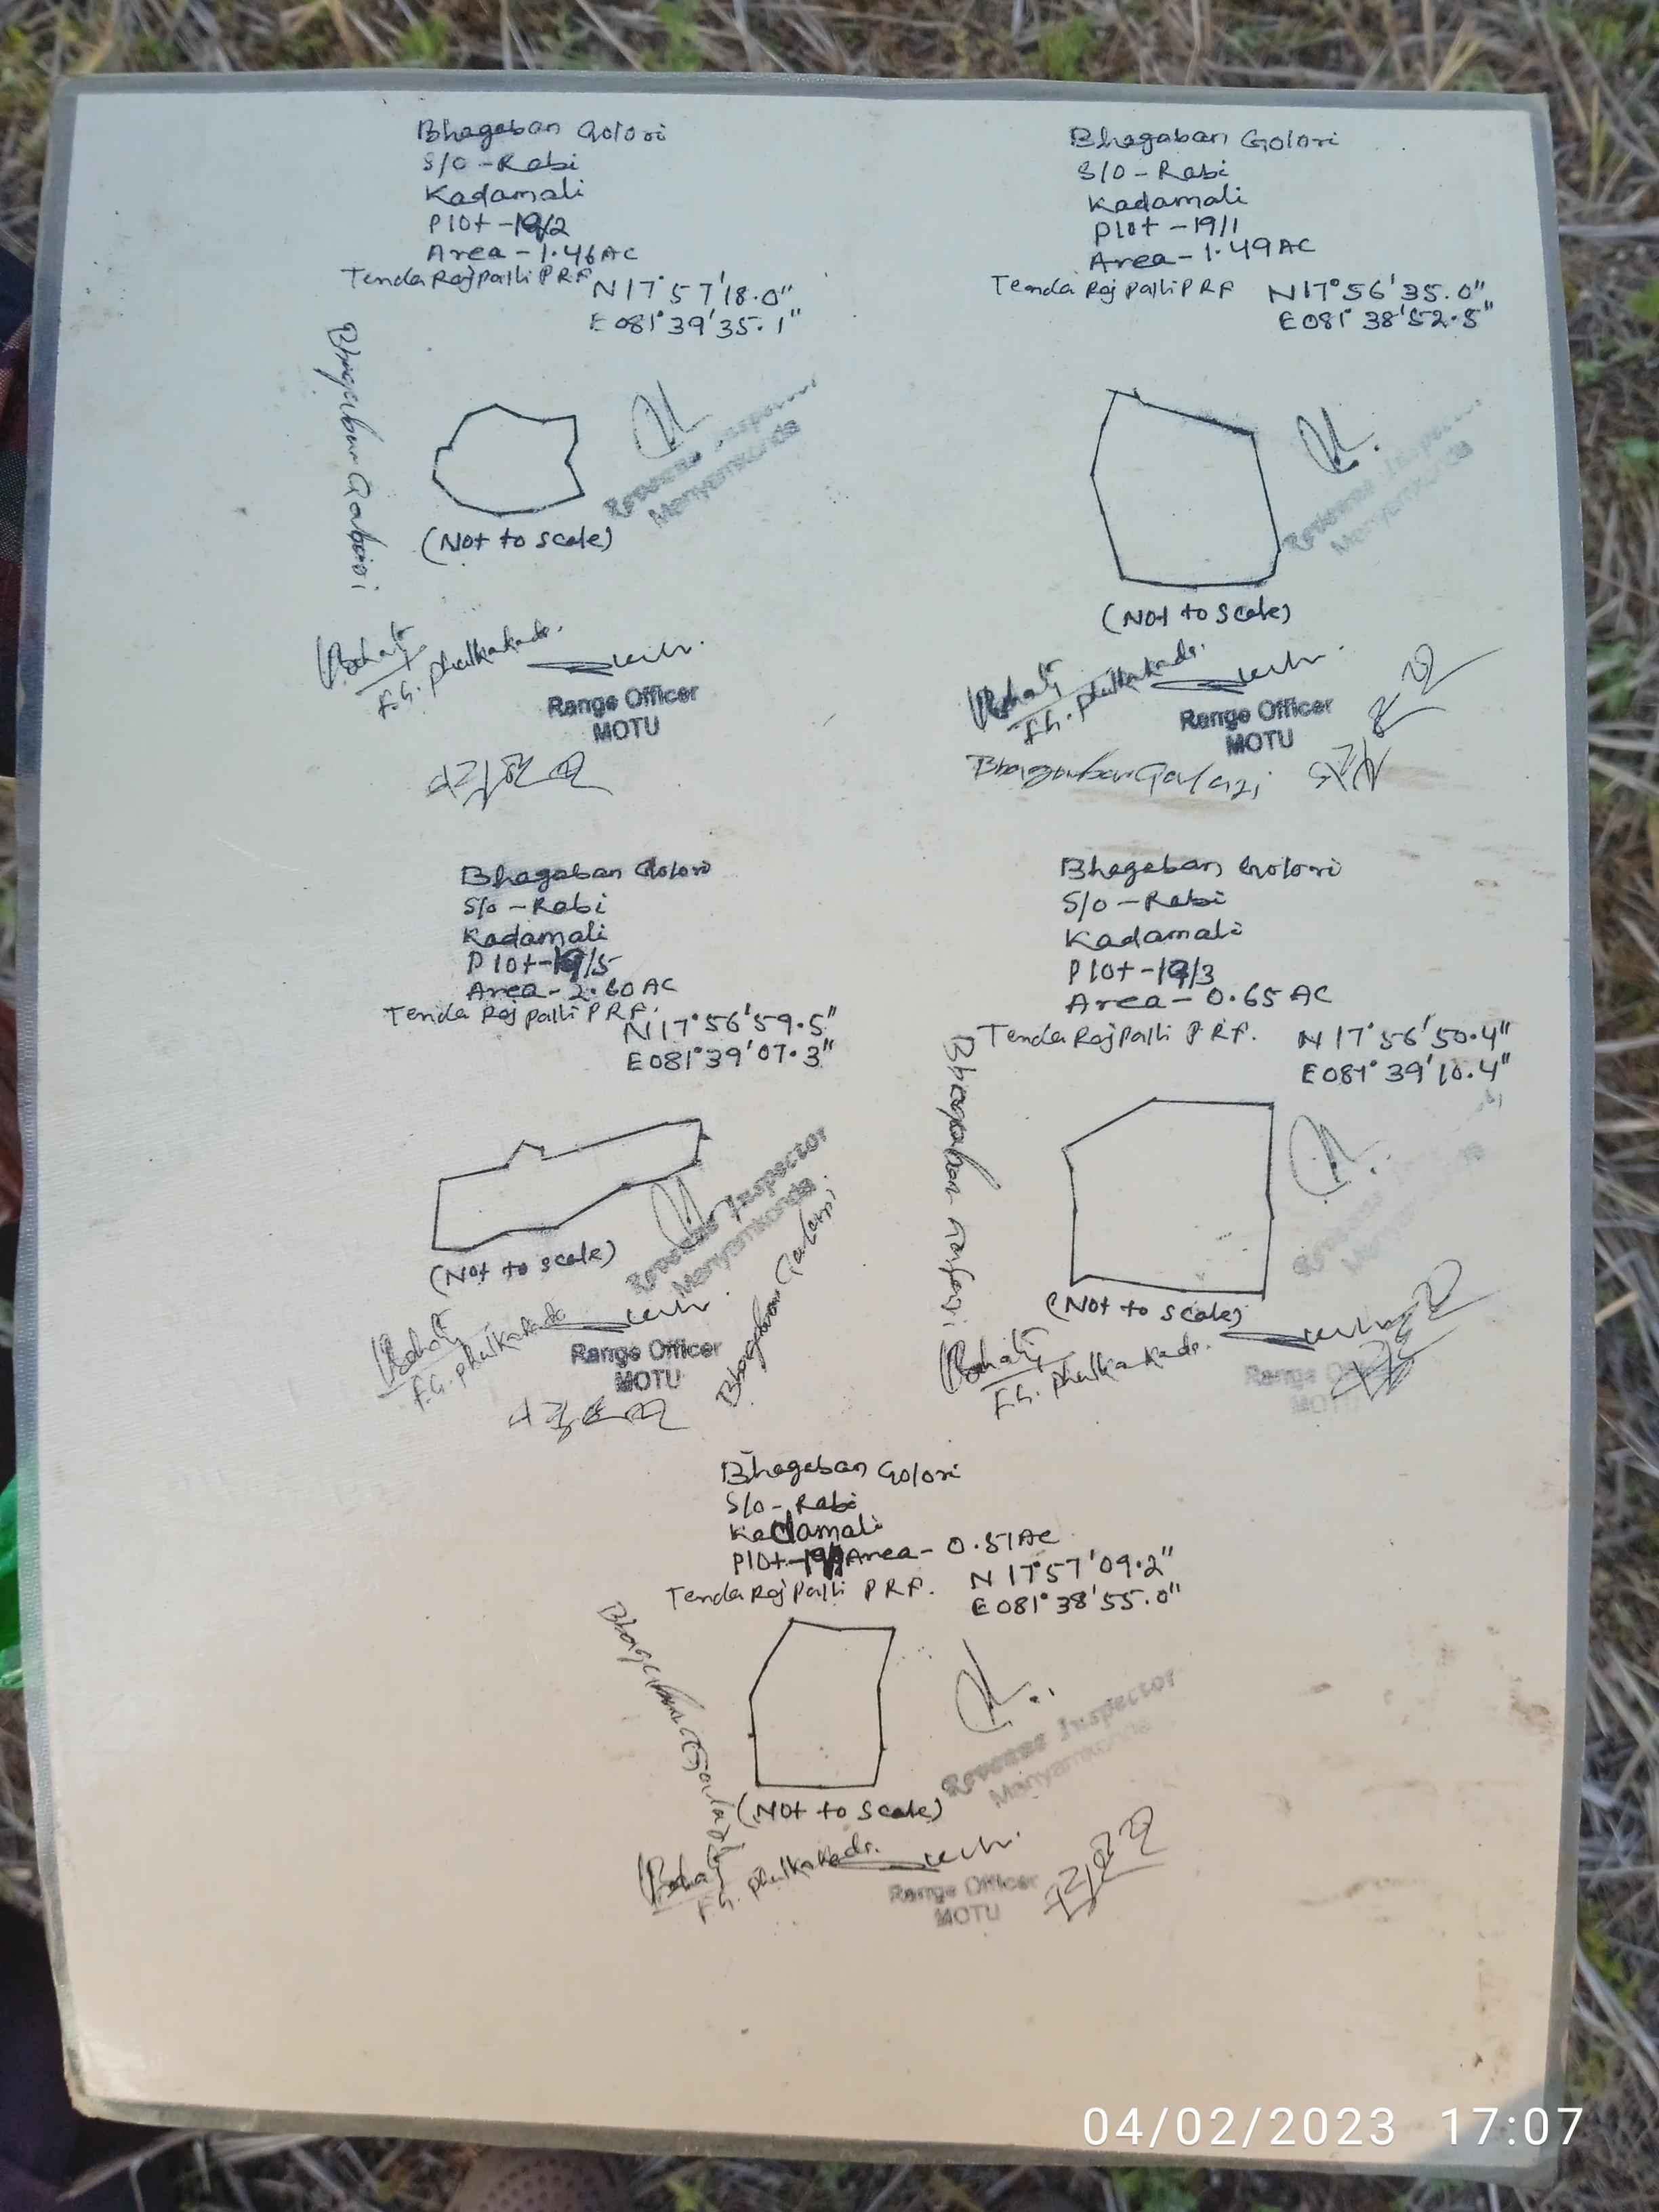 Bhagaban Golori
S/O - Rabi
Kadamali
Plot - 19/2
Area - 1.46 AC
Tenda Rajpalli PRF
N 17° 57' 18.0"
E 081° 39' 35.1"
(Not to scale)
Revenue Inspector
Manyamkonda
F.G. Phulkakada.
Range Officer
MOTU
Bhagaban Golori
S/O - Rabi
Kadamali
Plot - 19/1
Area - 1.49 AC
Tenda Rajpalli PRF
N 17° 56' 35.0"
E 081° 38' 52.5"
Revenue Inspector
Manyamkonda
(Not to scale)
F.G. Phulkakada.
Range Officer
MOTU
Bhagaban Golori
S/o - Rabi
Kadamali
Plot - 19/5
Area - 2.60 AC
Tenda Rajpalli PRF.
N 17° 56' 59.5"
E 081° 39' 07.3"
(Not to scale)
Revenue Inspector
Manyamkonda
F.G. Phulkakada
Range Officer
MOTU
Bhagaban Golori
S/O - Rabi
Kadamali
Plot - 19/3
Area - 0.65 AC
Tenda Rajpalli PRF.
N 17° 56' 50.4"
E 081° 39' 10.4"
(Not to scale)
F.G. Phulkakada.
Range Officer
MOTU
Bhagaban Golori
S/o - Rabi
Kadamali
Plot - Area - 0.51 AC
Tenda Rajpalli PRF.
N 17° 57' 09.2"
E 081° 38' 55.0"
Revenue Inspector
Manyamkonda
(Not to scale)
F.G. Phulkakada.
Range Officer
MOTU
04/02/2023 17:07